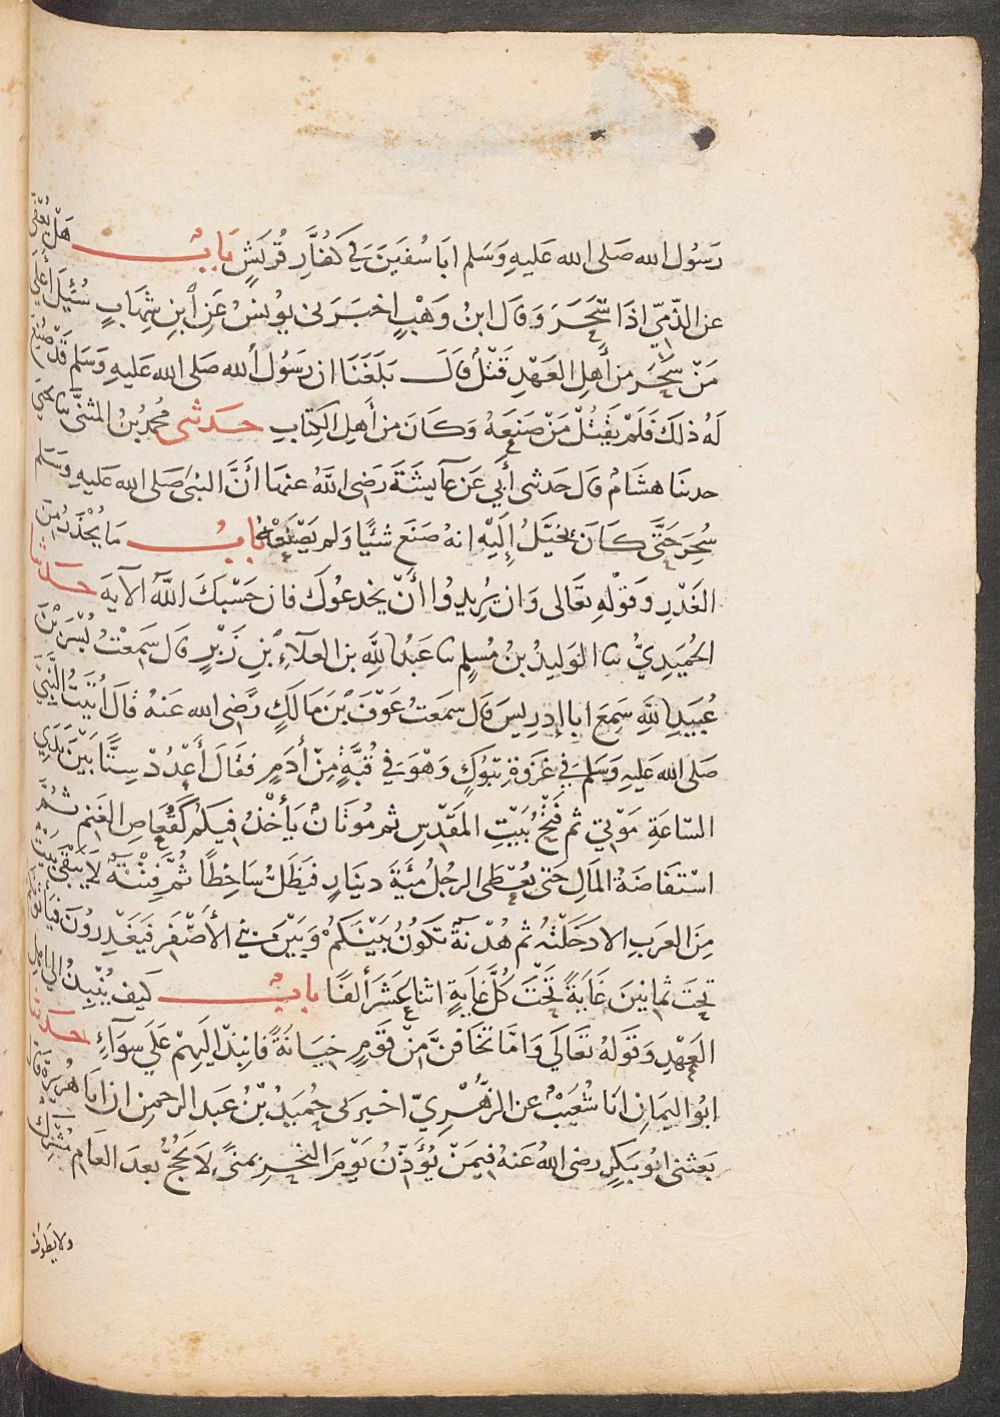 رَسُول الله صَلى الله عَليهِ وَسَلم ابَا سُفيَنَ فِي كَفُاَّرِ قُرَيشٍ بَابُ هَلْ يُعْفَى
عن الذّمّيّ اذَا سَحَرَ وَقَال ابنُ وَهْبٍ اخبَرَنى يوُنسُ عَنِ ابنِ شِهَابٍ سُئِلَ أَعَلَى
مَنْ سَحَرَ من أَهلِ العَهْدِ قَتْلٌ قالَ بَلَغَنَا ان رَسُوُل الله صَلى الله عَليهِ وَسَلم قَدْ صُنِعَ
لَهُ ذلكَ فَلَمْ يَقتُلْ مَنْ صَنَعَهُ وَكَانَ من أَهلِ الكِتابِ حدثنى محمدُ بنُ المثنَّى ثنا يحيَى
حدثنا هشَامٌ قال حَدثنى أَبي عَن عآيشَةَ رَضى اللهُ عنهَا أَنَّ النبىّ صَلى الله عَليهِ وَسَلم
سُحِرَ حَتَّى كانَ يُخيَّلُ إِلَيْهِ انهُ صَنَع شيًا وَلم يَصْنَعْهُ بابُ مَا يُحْذَرُ مِنَ
الغَدْرِ وَقَوْلهِ تعَالى وَان يُرِيدوُا أَنْ يخدعُوكَ فان حَسْبَكَ اللهُ الآيةَ حدثنا
الحُمَيدِيُّ ثنا الوَليدُ بنُ مُسلِمٍ ثنا عَبدُ للهِ بن العلآءِ بنِ زَبْرٍ قال سَمِعْتُ بُسْرَ بْنَ
عُبَيدِ للهِ سَمِعَ ابا إدرِيسَ قال سمَعتُ عَوْفَ بْنَ مَالكٍ رَّضى الله عَنهُ قالَ أَتَيتُ النَّبيَّ
صَلى الله عَليهِ وَسَلم فى غَزوَةِ تبُوكٍ وَهْوَ فى قُبَّةٍ مِنْ أَدَمٍ فقَالَ أُعْدُدْ سِتًّا بَيْنَ يَدَيِ
السَّاعَةِ مَوْتي ثم فَتحُ بَيْتِ المَقدسِ ثم مُوتَانٌ يَأْخُذُ فيكمْ كَقُعَاصِ الغَنمِ ثمَّ
اسْتفَاضَةُ المَالِ حَتى يعُطَى الرجُلُ مئَةَ دينَارٍ فيَظَلّ سَاخِطًا ثمَّ فِتْنَةٌ لاَ يَبْقَى بَيْتٌ
مِنَ العرَبِ الا دَخَلَتْهُ ثم هُدْنةٌ تكُونُ بَيْنكمْ وَبَيْنَ بني الأَصْفَرِ فَيَغْدِروُنَ فيَأْتُونكمْ
تحتَ ثمانينَ غَايةً تحْتَ كُلّ غايةٍ اثنا عَشَرَ أَلفًا بابُ كَيف يُنْبَذُ الى اهل
العَهْدِ وَقَولهُ تعَالَى وَامَّا تَخَافنَّ مِنْ قَومٍ خِيَانَةً فانبِذْ الَيهِمْ عَلَى سَوَآءٍ حدثنا
ابوُ اليَمانِ انَا شُعَيْبٌ عن الزُّهْرِيّ اخبرَنى حُمَيدُ بْنُ عَبد الرحمن ان ابَا هُرَيرَةَ قال
بَعثنى ابُو بَكرٍ رضى اللهُ عَنهُ فيمَنْ يُؤَذّنُ يَوْمَ النحرِ بمنىً لاَ يَحُجُّ بعدَ العَام مُشْركٌ
ولا يطوف